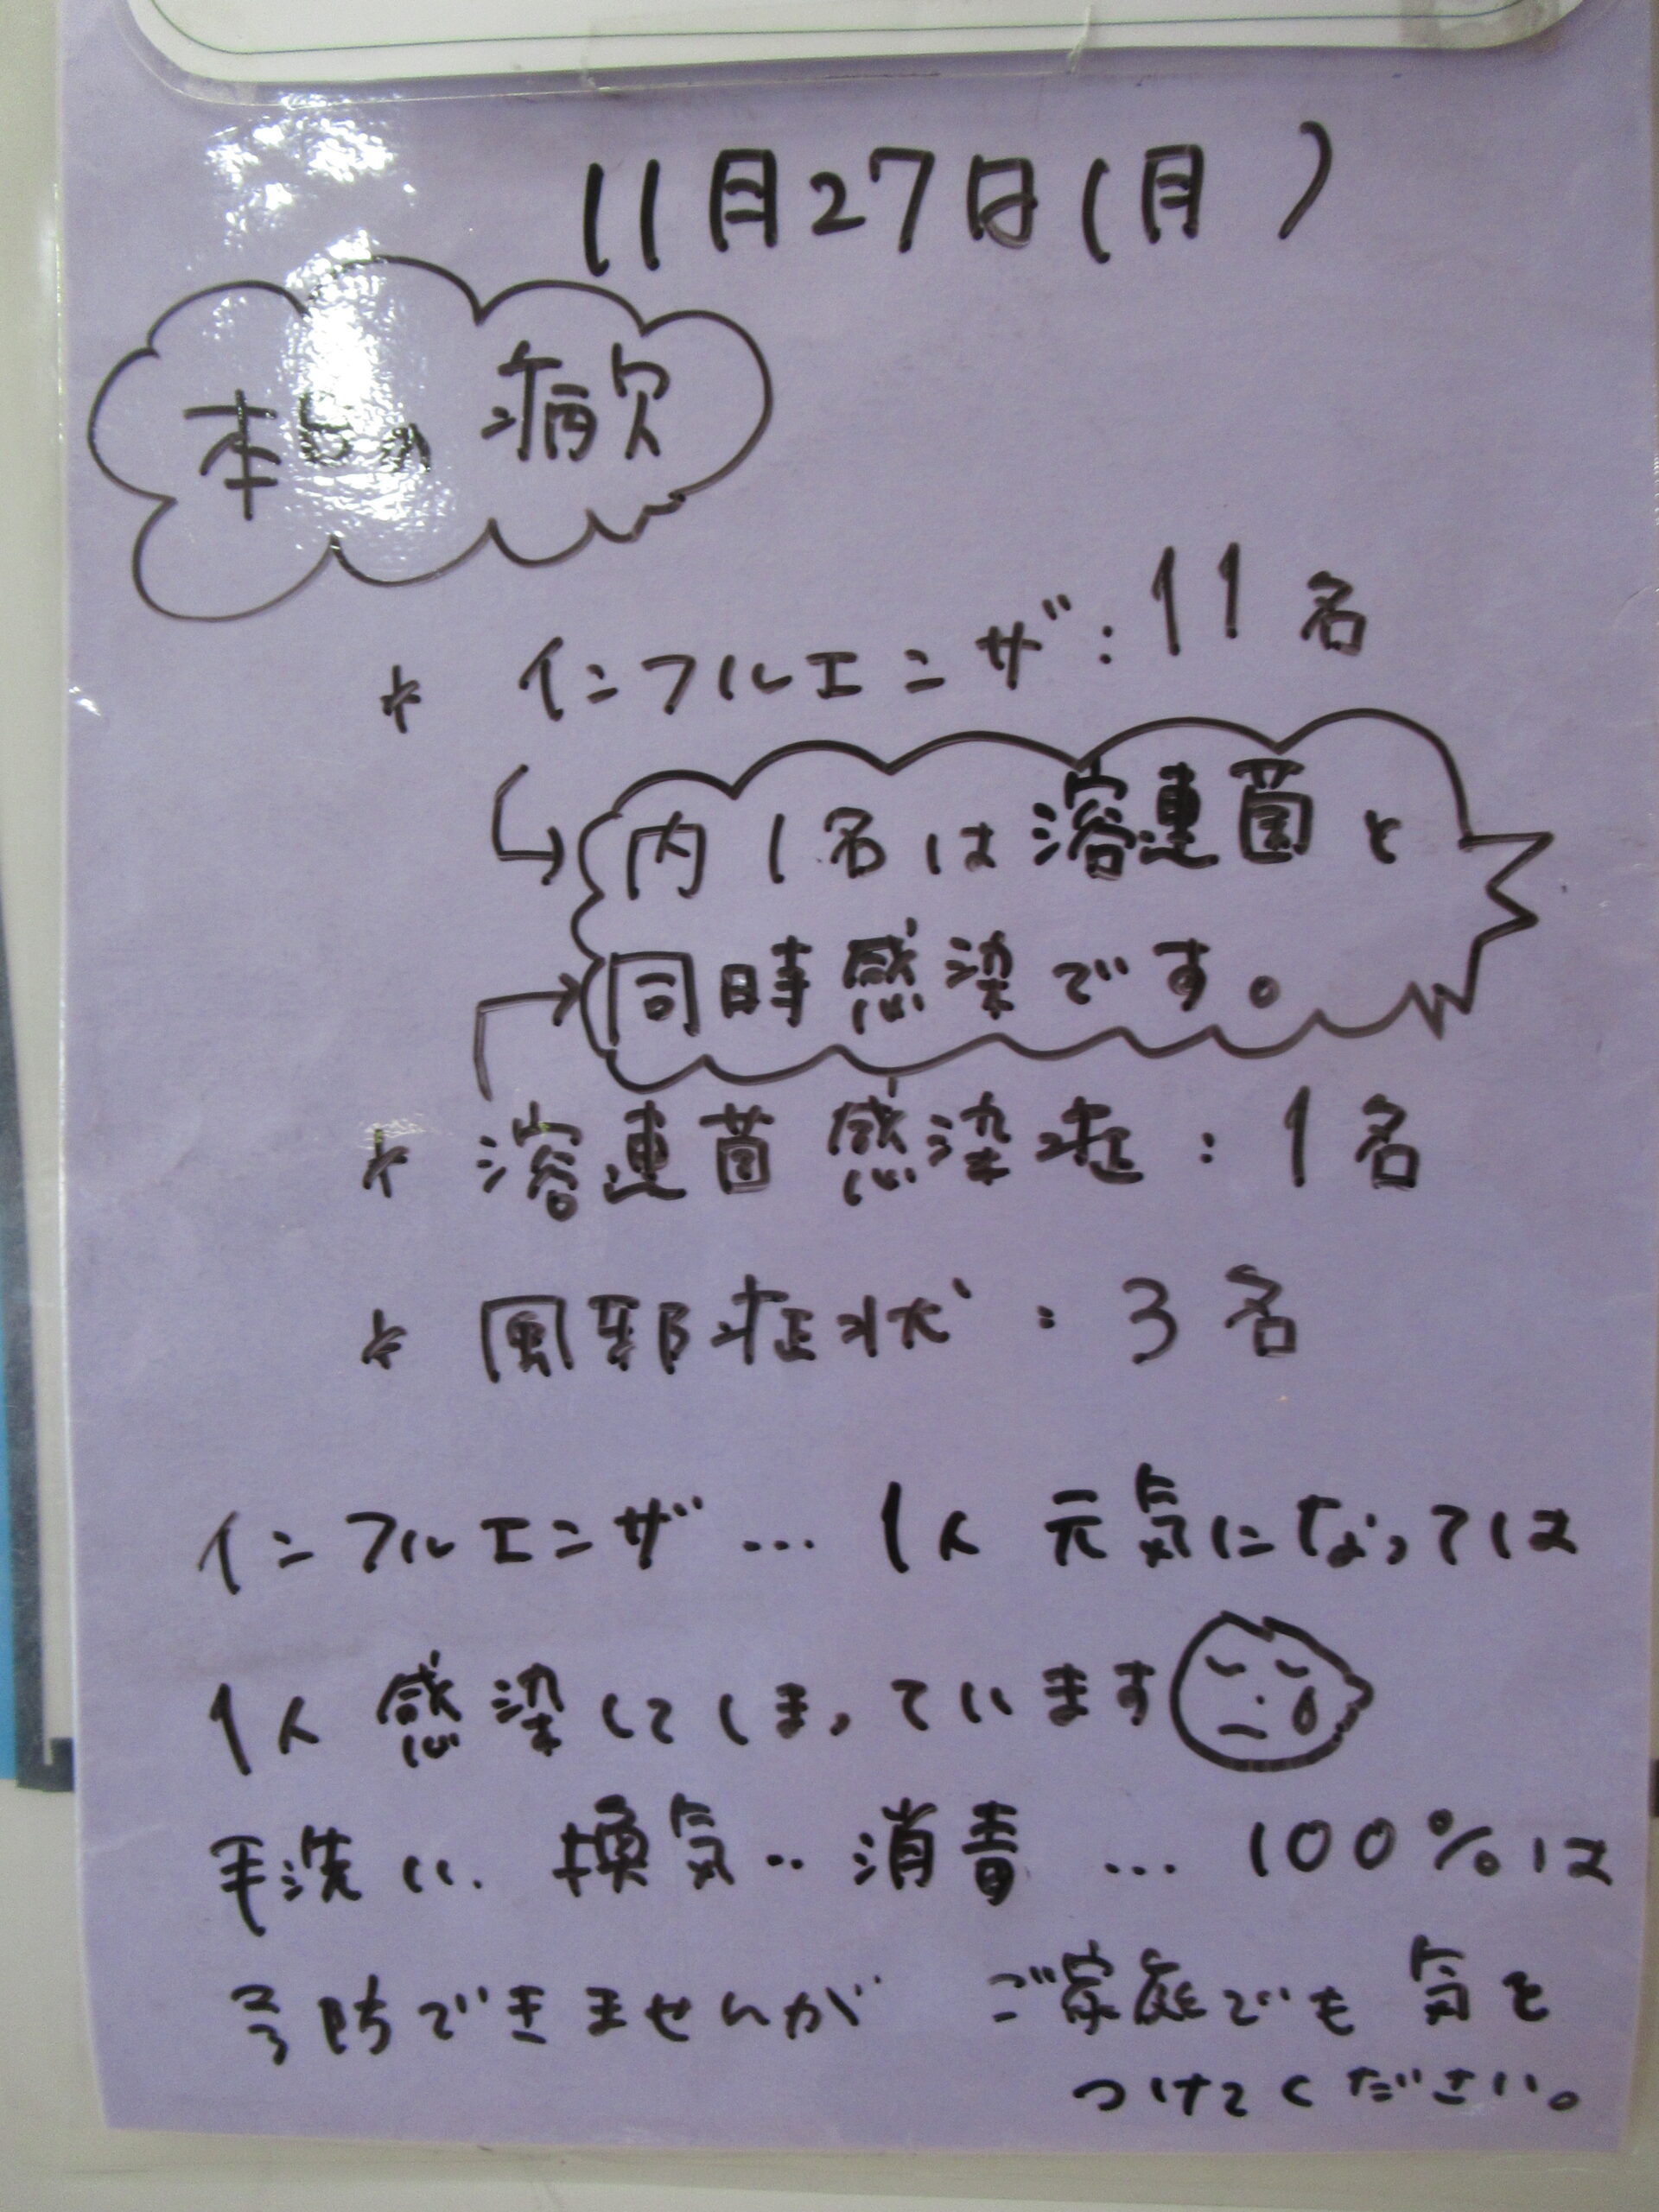 11月27日(月)
本日の病欠
* インフルエンザ:11名
内1名は溶連菌と
同時感染です。
* 溶連菌感染症:1名
* 風邪症状:3名
インフルエンザ…1人元気になっては
1人感染してしまっています
手洗い、換気‥消毒…100%は
予防できませんが ご家庭でも気を
つけてください。